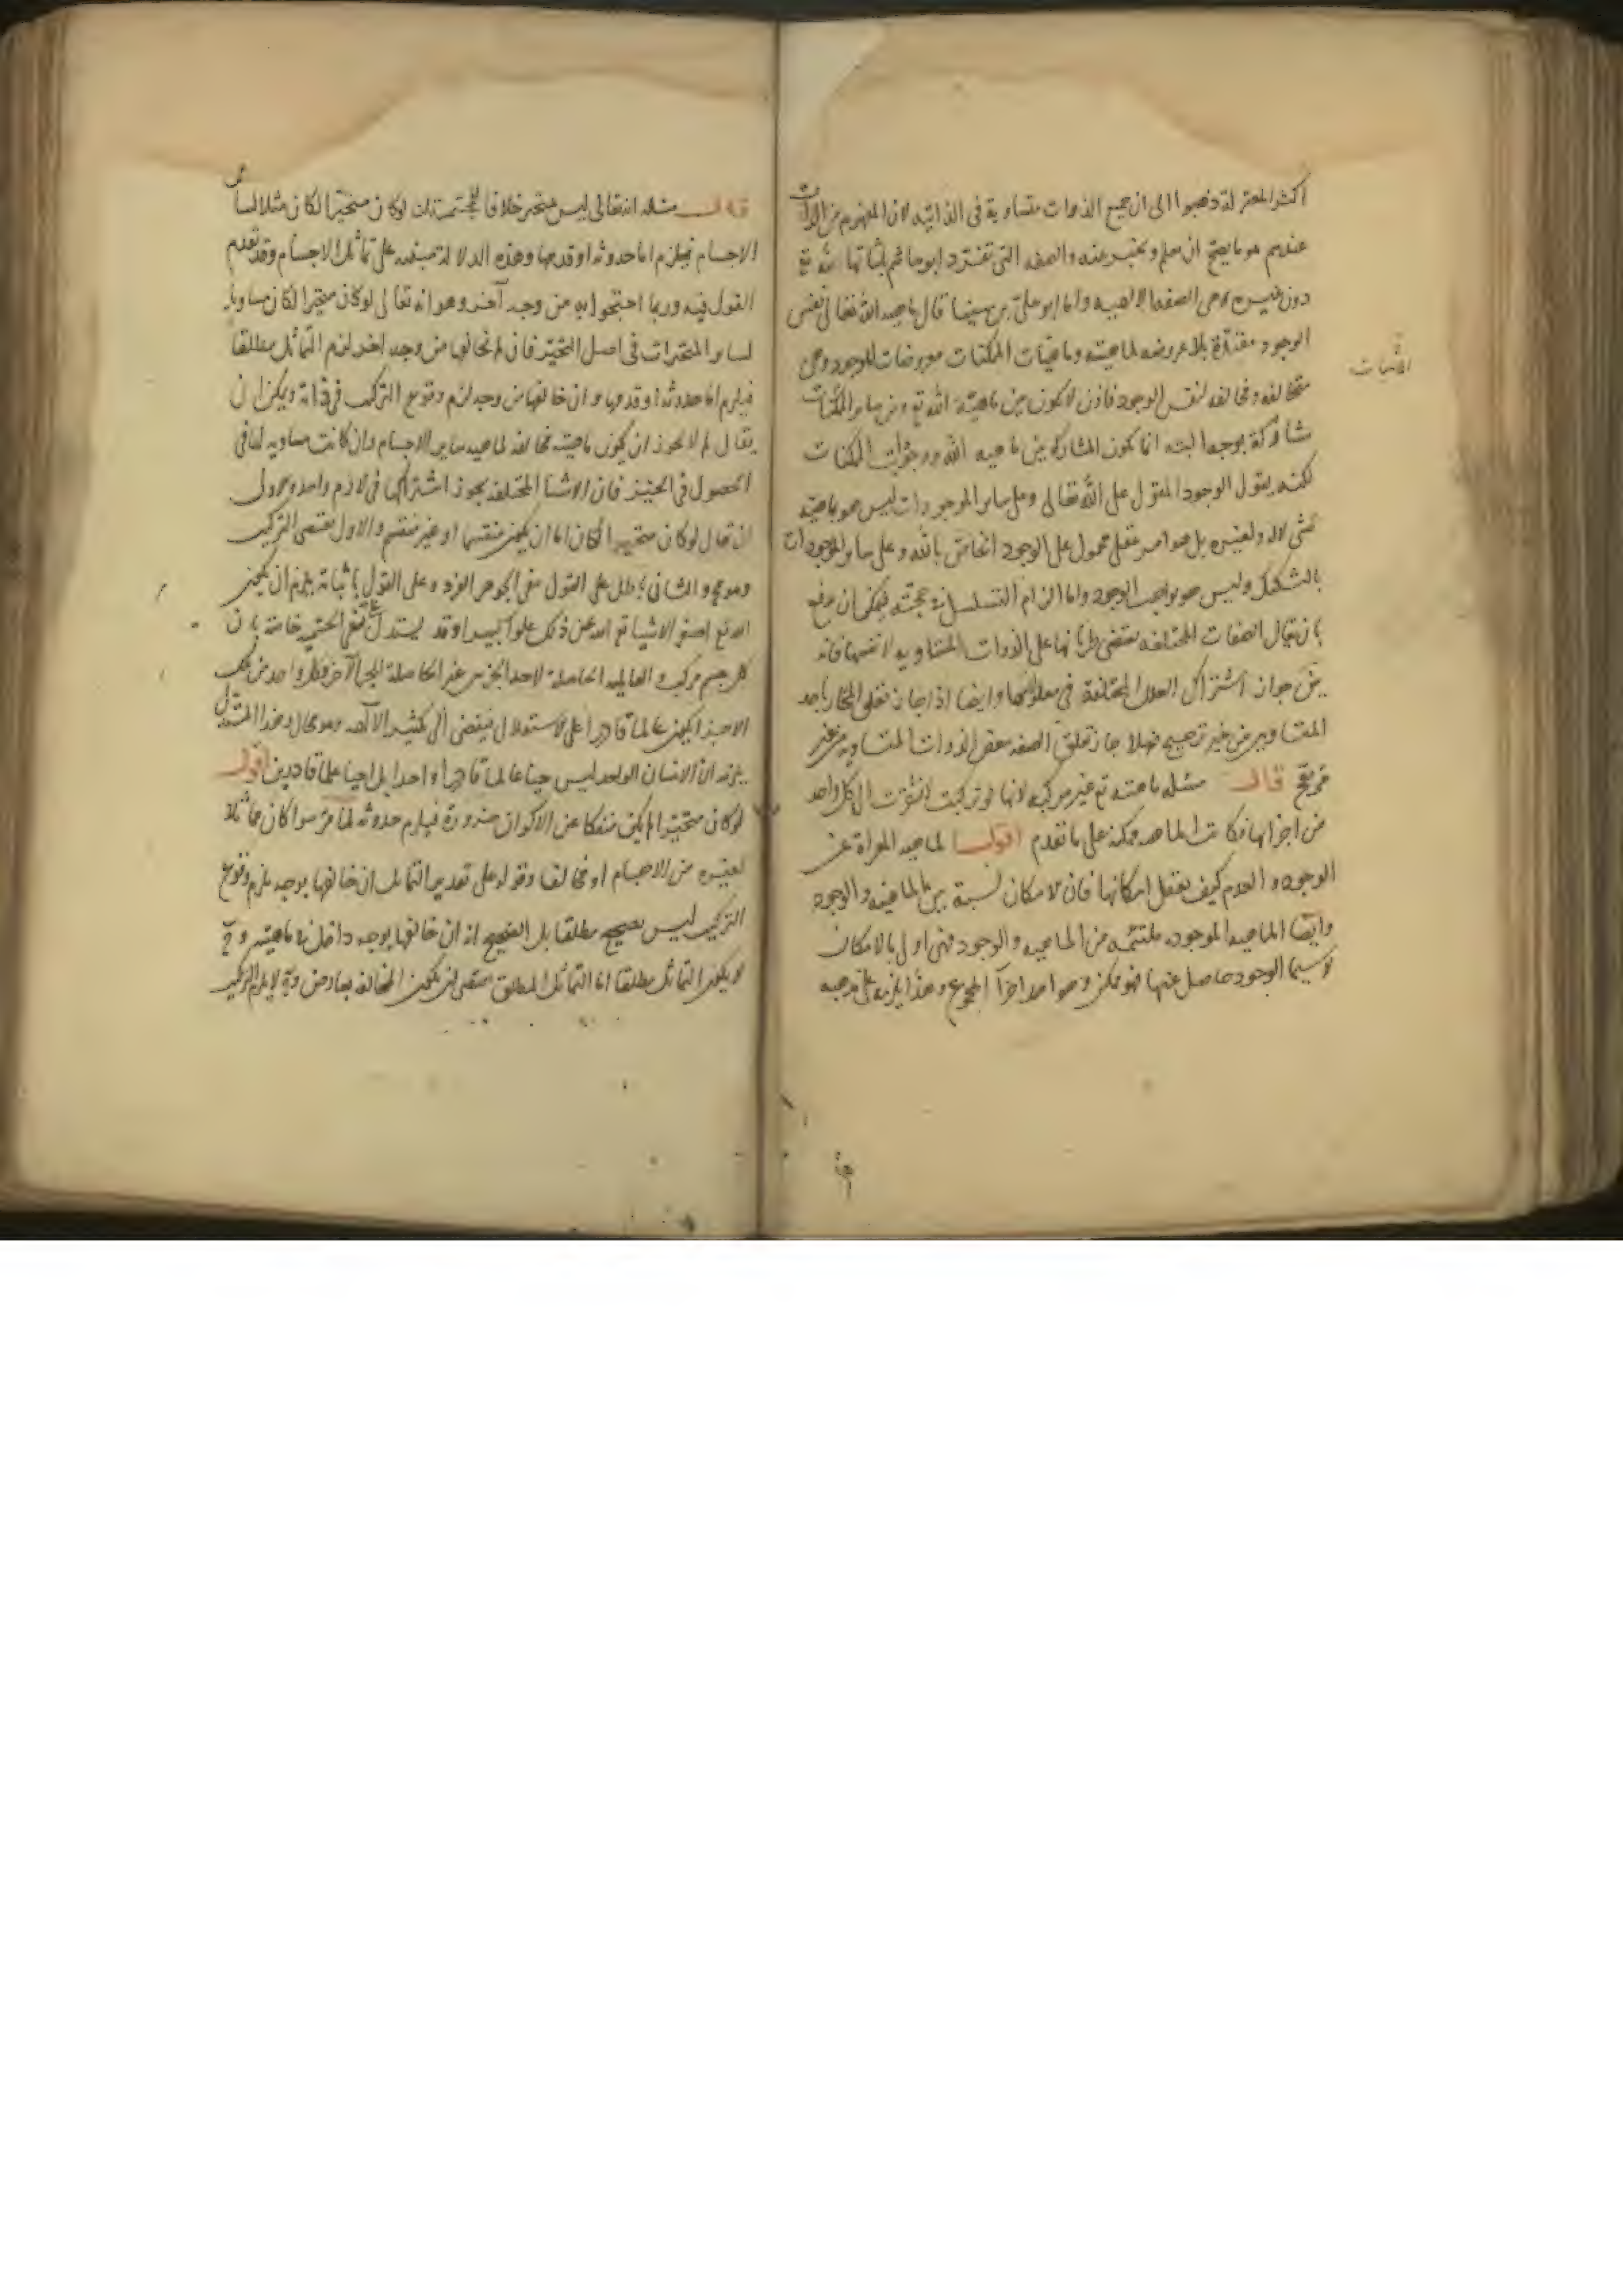 اكثر المعتزلة ذهبوا الى ان جميع الذوات متساوية في الذاتيه لان المفهوم من الذات
عندهم هو ما يصح ان يعلم ويخبر عنه والصفه التى تفرد ابو هاشم باثباتها لله تع
دون غيره هى الصفه الالهيه واما ابو على بن سينا قال ماهيه الله تعالى نفس
الوجود مقيدة بلا عروضه لماهيته وماهيات الممكنات معروضات للوجود وهى
متخالفه ومخالفه لنفس الوجود فاذن لا يكون بين ماهية الله تع وبين ساير الممكنات
مشاركة بوجه البته انما يكون المشاركه بين ماهيه الله ووجودات الممكنات
لكنه يقول الوجود المقول على الله تعالى وعلى ساير الموجودات ليس هو ماهيته
لشى لا له ولغيره بل هو امر عقلى محمول على الوجود الخاص بالله وعلى ساير الموجودات
بالتشكيك وليس هو بواجب الوجود واما الزام التسلسل فى حجته فيمكن ان يدفع
بان يقال الصفات المختلفه يقتضى طريانها على الذوات المتساويه لانفسها فانه
بين جواز اشتراك العلل المختلفة في معلولها وايضا اذا جاز تعلق المختار باحد
المتساويين من غير ترجيح فهلا جاز تعلق الصفه ببعض الذوات المتساويه من غير
مرجح قال مسئله ماهيته تع غير مركبه لانها لو تركبت افتقرت الى كل واحد
من اجزائها فكانت الماهيه ممكنه على ما تقدم اقول الماهيه المعراة عن
الوجود والعدم كيف يعقل امكانها فان الامكان نسبة بين الماهيه والوجود
وايضا الماهيه الموجوده ملتئمه من الماهيه والوجود فهى اولى بالامكان
لا سيما الوجود حاصل عنها فهو ممكن وهو احد اجزآ المجموع وهذا يلزمه على مذهبه
الاثبات
قال مسئله انه تعالى ليس متحيز خلافا للمجسمة لنا لو كان متحيزا لكان مثلا لساير
الاجسام فيلزم اما حدوثه او قدمها وهذه الدلاله مبنيه على تماثل الاجسام وقد تقدم
القول فيه وربما احتجوا به من وجه آخر وهو انه تعالى لو كان متحيزا لكان مساويا
لساير المتحيزات في اصل التحيز فان لم يخالفها من وجه اخر لزم التماثل مطلقا
فيلزم اما حدوثه او قدمها وان خالفها من وجه لزم وقوع التركيب في ذاته ويمكن ان
يقال لم لا يجوز ان يكون ماهيته مخالفه لماهيه ساير الاجسام وان كانت مساويه لها في
الحصول في الحيز فان الاشيا المختلفه يجوز اشتراكها في لازم واحد والاولى
ان يقال لو كان متحيزا لكان اما ان يكون منقسما او غير منقسم والاول يقتضى التركيب
وهو مح والثانى باطل على القول بنفى الجوهر الفرد وعلى القول باثباته يلزم ان يكون
الله تع اصغر الاشيا تع الله عن ذلك علوا كبيرا وقد يستدل على نفى الجسميه خاصة بان
كل جسم مركب والعالميه الحاصلة لاحد الجزين غير الحاصلة للجز الآخر فكل واحد من تلك
الاجزا يكون عالما قادرا على الاستقلال فيفضى الى تكثير الآلهه وهو محال وهذا المستدل
يلزمه ان الانسان الواحد ليس حيا عالما قادرا واحدا بل احيا علما قادرين اقول
لو كان متحيزا لم يكن منفكا عن الاكوان ضرورة فيلزم حدوثه لما مر سوا كان مماثلا
لغيره من الاجسام او مخالفا وقوله على تقدير التماثل ان خالفها بوجه يلزم وقوع
التركيب ليس بصحيح مطلقا بل الصحيح انه ان خالفها بوجه داخل في ماهيته وح
لا يكون التماثل مطلقا اما التماثل المطلق يقتضى ان يكون المخالفه بعارض وح لا يلزم التركيب